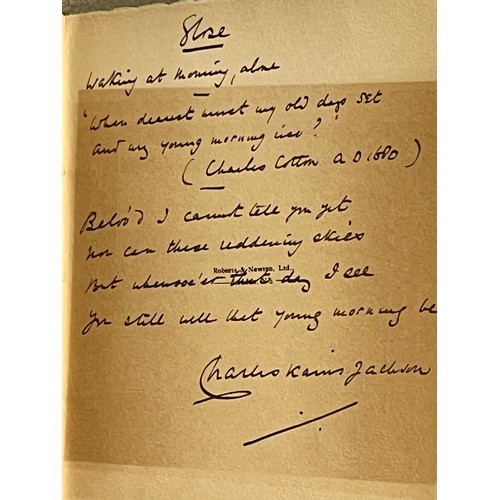 Glose
Waking at Morning, alone
"When dearest must my old days set
And my young morning rise?"
(Charles Cotton A D 1680)
Belov'd I cannot tell you yet
Nor can these reddening skies
Roberts & Newton, Ltd.,
But whensoe'er that day I see
You still will that young morning be
Charles Kains Jackson